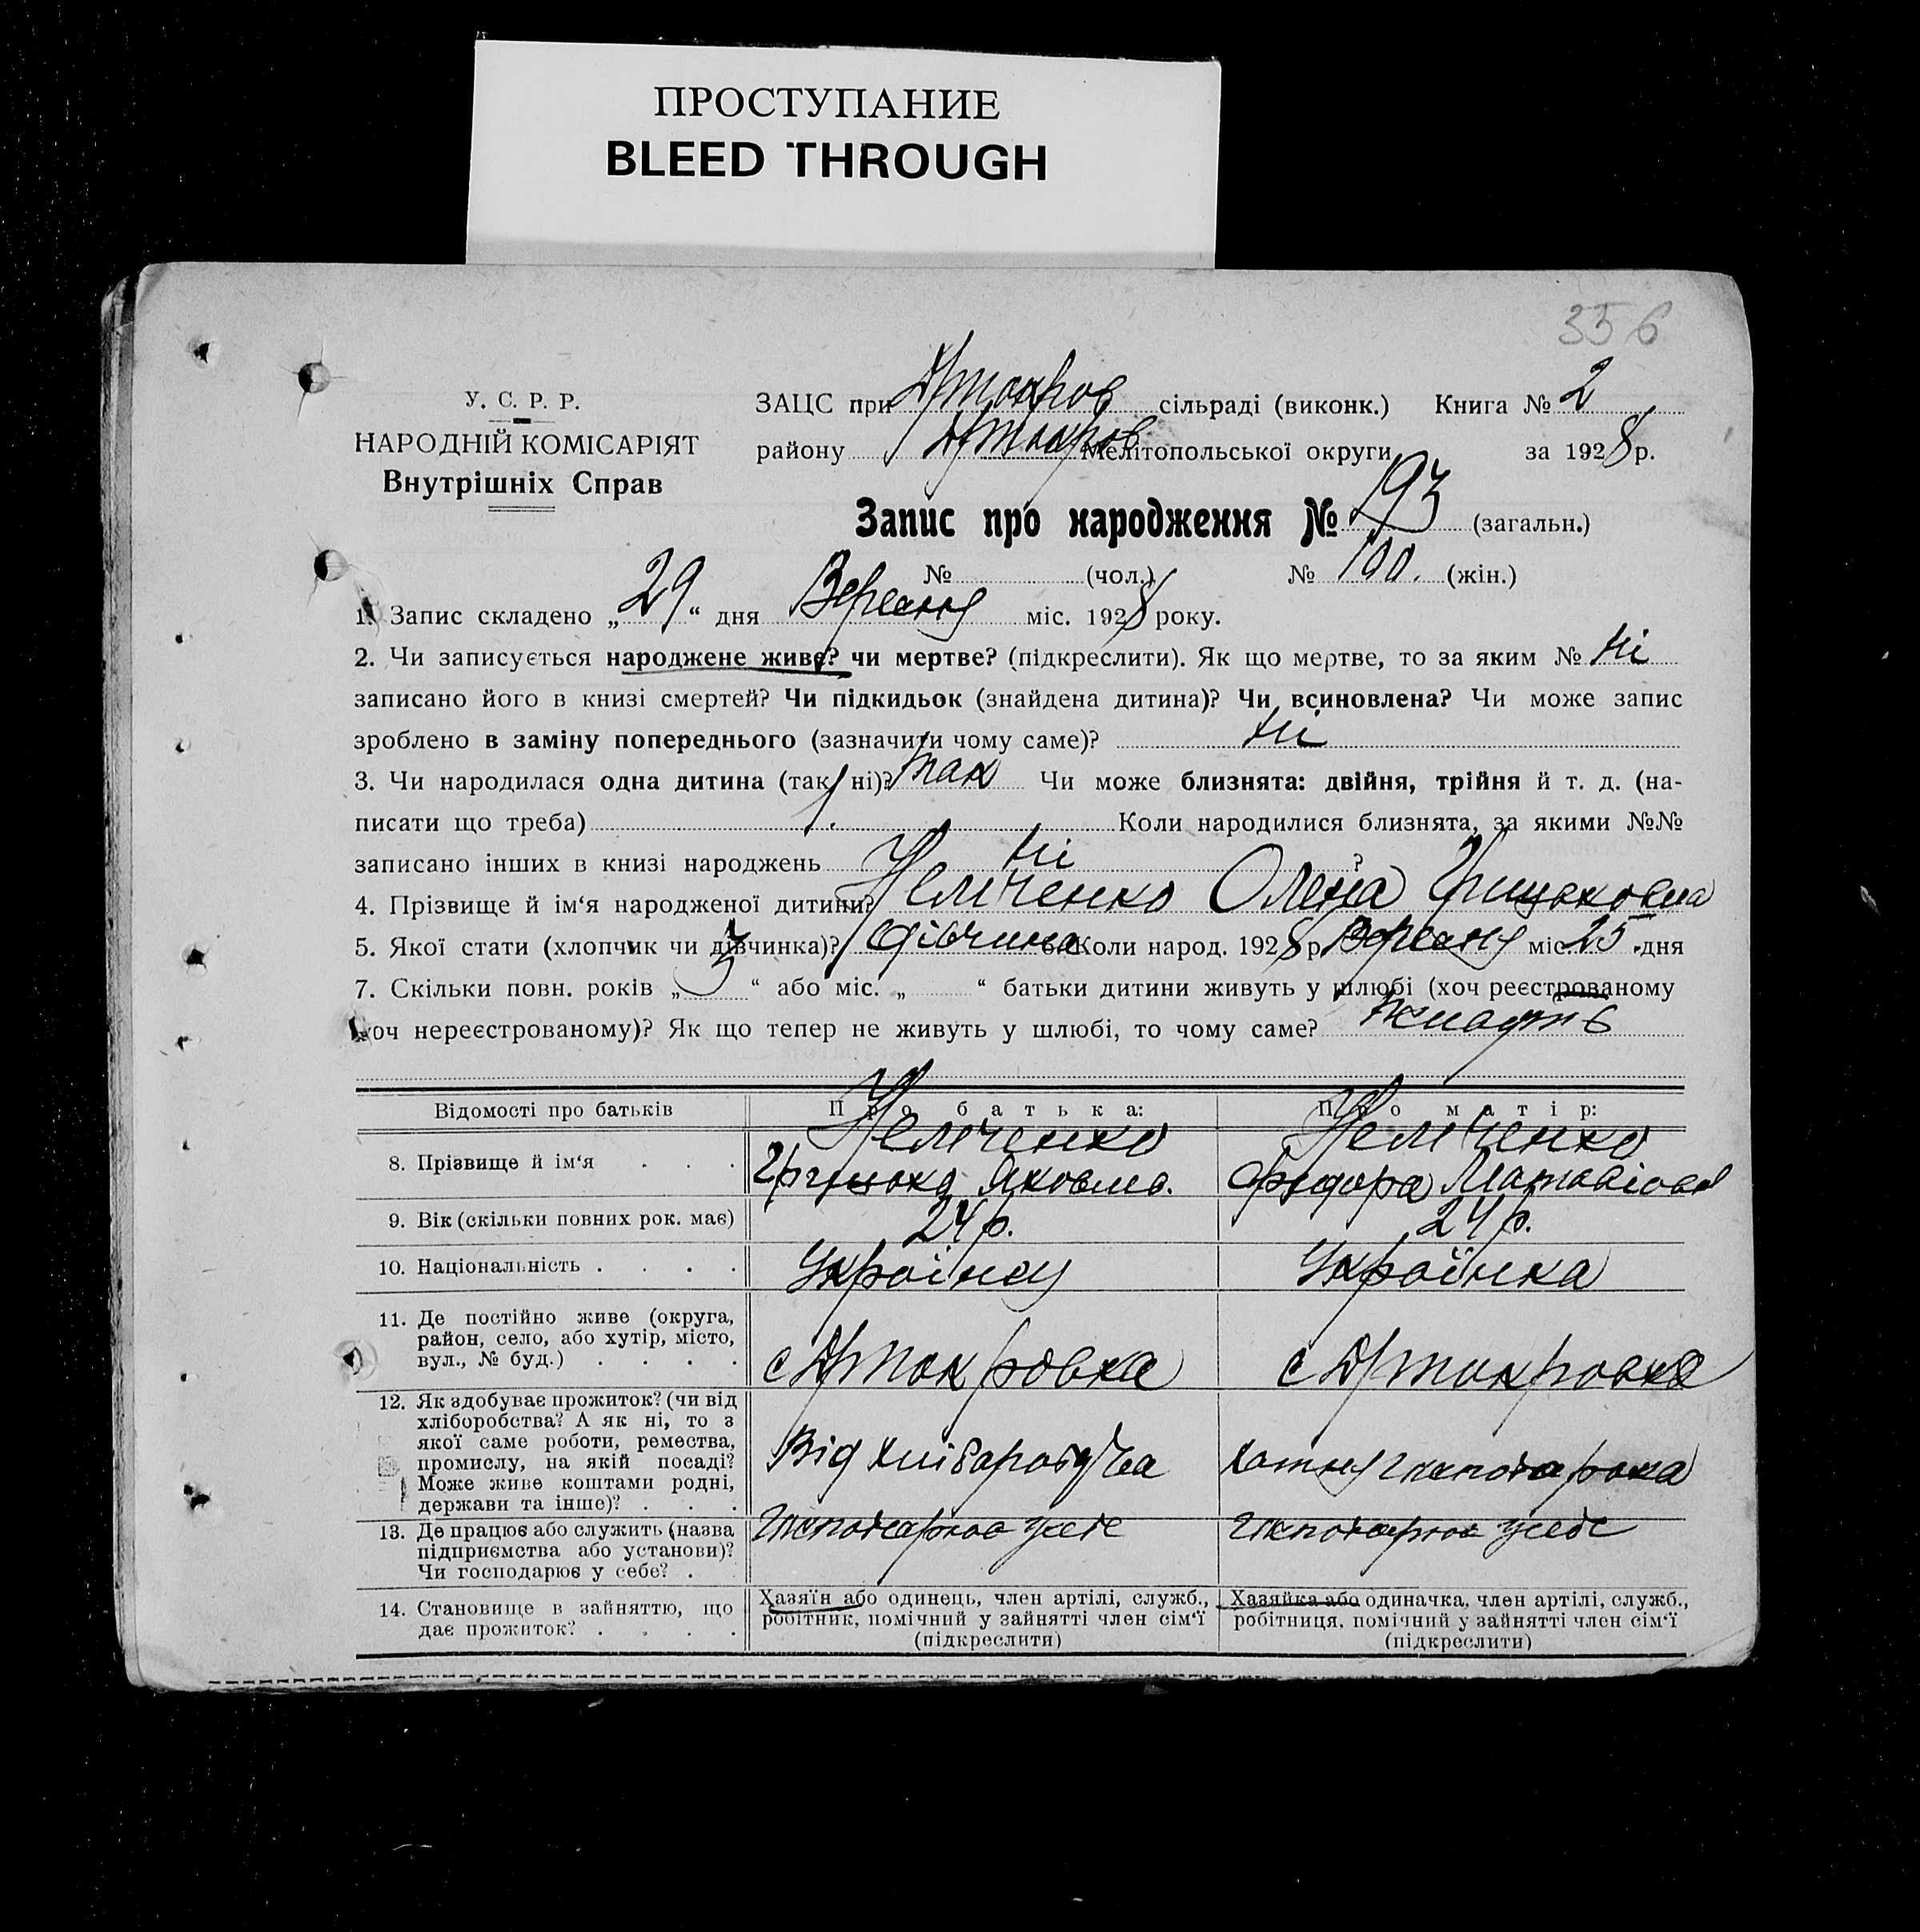 ПРОСТУПАНИЕ
BLEED THROUGH
356
У. С. Р. Р.
НАРОДНІЙ КОМІСАРІЯТ
Внутрішніх Справ
ЗАЦС при сільраді (виконк.) Книга № 2
району Мелітопольської округи за 1928 р.
Запис про народження № 193 (загальн.)
№ (чол.) № 100. (жін.)
1. Запис складено „29“ дня Вересня міс. 1928 року.
2. Чи записується народжене живе? чи мертве? (підкреслити). Як що мертве, то за яким № ні
записано його в книзі смертей? Чи підкидьок (знайдена дитина)? Чи всиновлена? Чи може запис
зроблено в заміну попереднього (зазначити чому саме)? ні
3. Чи народилася одна дитина (так, ні)? так Чи може близнята: двійня, трійня й т. д. (на-
писати що треба) Коли народилися близнята, за якими №№
записано інших в книзі народжень ні ?
4. Прізвище й ім‘я народженої дитини? Олена
5. Якої стати (хлопчик чи дівчинка)? дівчина 6. Коли народ. 1928 р. Вересня міс. 25 дня
7. Скільки повн. років „3“ або міс. „ “ батьки дитини живуть у шлюбі (хоч реєстрованому
хоч нереєстрованому)? Як що тепер не живуть у шлюбі, то чому саме? живуть
Відомості про батьків Про батька: Про матір:
8. Прізвище й ім‘я . . .
9. Вік (скільки повних рок. має) 24 р. 24 р.
10. Національність . . . . Українец Українка
11. Де постійно живе (округа,
район, село, або хутір, місто,
вул., № буд.) . . . .
12. Як здобуває прожиток? (чи від
хліборобства? А як ні, то з
якої саме роботи, ремества,
промислу, на якій посаді?
Може живе коштами родні,
держави та інше)? . . .
Від
13. Де працює або служить (назва
підприємства або установи)?
Чи господарює у себе? .
14. Становище в зайняттю, що
дає прожиток? . . . .
Хазяїн або одинець, член артілі, служб.,
робітник, помічний у зайнятті член сім‘ї
(підкреслити)
Хазяйка або одиначка, член артілі, служб.,
робітниця, помічний у зайнятті член сім‘ї
(підкреслити)